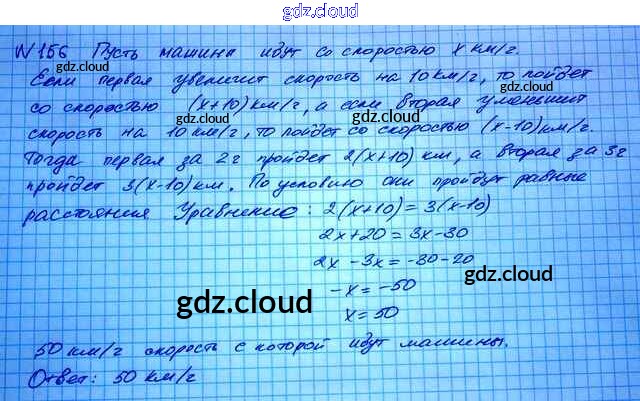 gdz.cloud
N 156 Пусть машины идут со скоростью x км/г.
Если первая увеличит скорость на 10 км/г, то пойдет
со скоростью (x+10) км/г, а если вторая уменьшит
скорость на 10 км/г, то пойдет со скоростью (x-10) км/г.
Тогда первая за 2г пройдет 2(x+10) км, а вторая за 3г
пройдет 3(x-10) км. По условию они пройдут равные
расстояния Уравнение: 2(x+10) = 3(x-10)
2x+20 = 3x-30
2x - 3x = -30-20
-x = -50
x = 50
50 км/г скорость с которой идут машины.
Ответ: 50 км/г
gdz.cloud
gdz.cloud
gdz.cloud
gdz.cloud
gdz.cloud
gdz.cloud
gdz.cloud